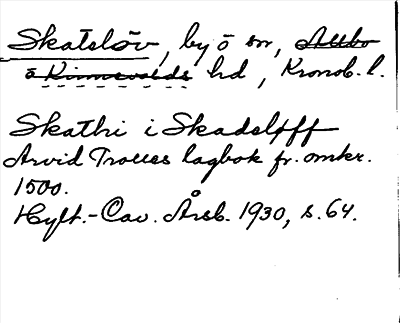 Skatelöv, by ö sn, Allbo
o Kinnevalds hd, Kronob. l.
Skathi i Skadelöff
Arvid Trolles lagbok fr. omkr.
1500.
Hylt.-Cav. Årsb. 1930, s. 64.